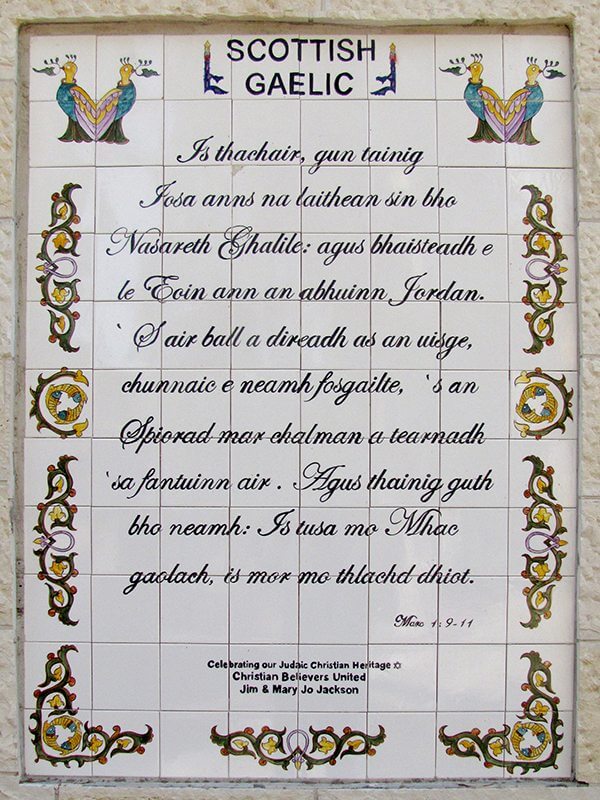 SCOTTISH
GAELIC
Is thachair, gun tainig
Iosa anns na laithean sin bho
Nasareth Ghalile: agus bhaisteadh e
le Eoin ann an abhuinn Jordan.
`S air ball a direadh as an uisge,
chunnaic e neamh fosgailte, `s an
Spiorad mar chalman a tearnadh
`sa fantuinn air . Agus thainig guth
bho neamh: Is tusa mo Mhac
gaolach, is mor mo thlachd dhiot.
Marc 1:9-11
Celebrating our Judaic Christian Heritage ✡
Christian Believers United
Jim & Mary Jo Jackson